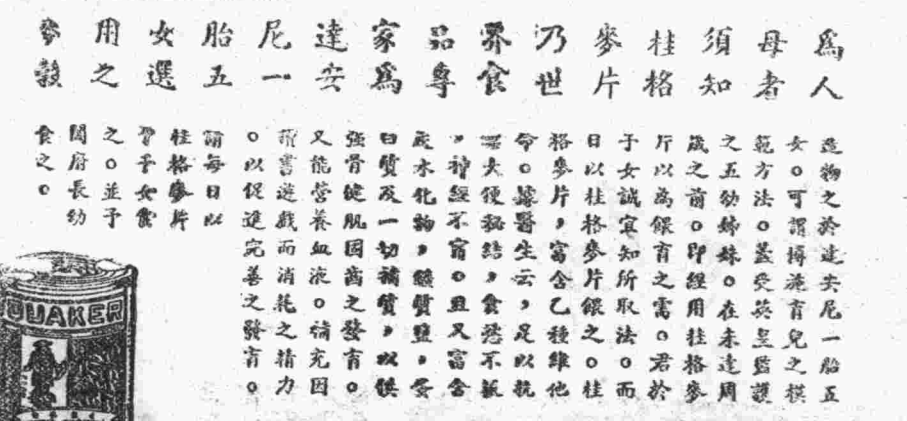 為人
母者
須知
桂格
麥片
乃世
界食
品尊
家為
達安
尼一
胎五
女選
用之
麥
造物之於達安尼一胎五
女。可謂博施育兒之模
範方法。蓋受英皇監護
之五幼姊妹。在未達周
歲之前。即經用桂格麥
片以為餵育之需。君於
子女誠宜知所取法。而
日以桂格麥片餵之。桂
格麥片，富含乙種維他
命。據醫生云，足以抗
禦大便秘結，食慾不振
，神經不甯。且又富含
炭水化物，鐵質鹽，蛋
白質及一切補質，以供
強骨健肌固齒之發育。
又能營養血液。補充因
讀書遊戲而消耗之精力
。以促進完善之發育。
請每日以
桂格麥片
予女
之。並予
闔府長幼
食之。
QUAKER